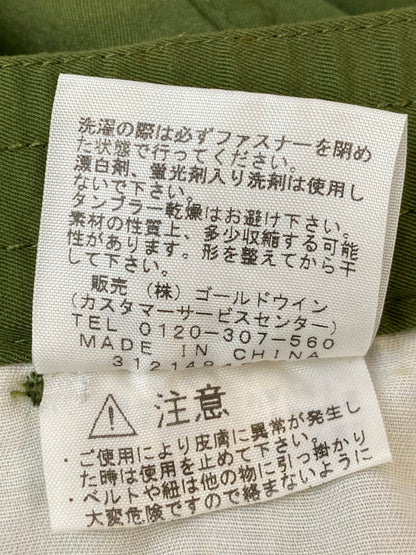 洗濯の際は必ずファスナーを閉め
た状態で行ってください。
漂白剤、蛍光剤入り洗剤は使用し
ないで下さい。
タンブラー乾燥はお避け下さい。
素材の性質上、多少収縮する可能
性があります。形を整えてから干
して下さい。
販売 (株) ゴールドウイン
(カスタマーサービスセンター)
TEL 0120-307-560
MADE IN CHINA
注意
・ご使用により皮膚に異常が発生し
た時は使用を止めて下さい。
・ベルトや紐は他の物に引っ掛かり
大変危険ですので絡まないように